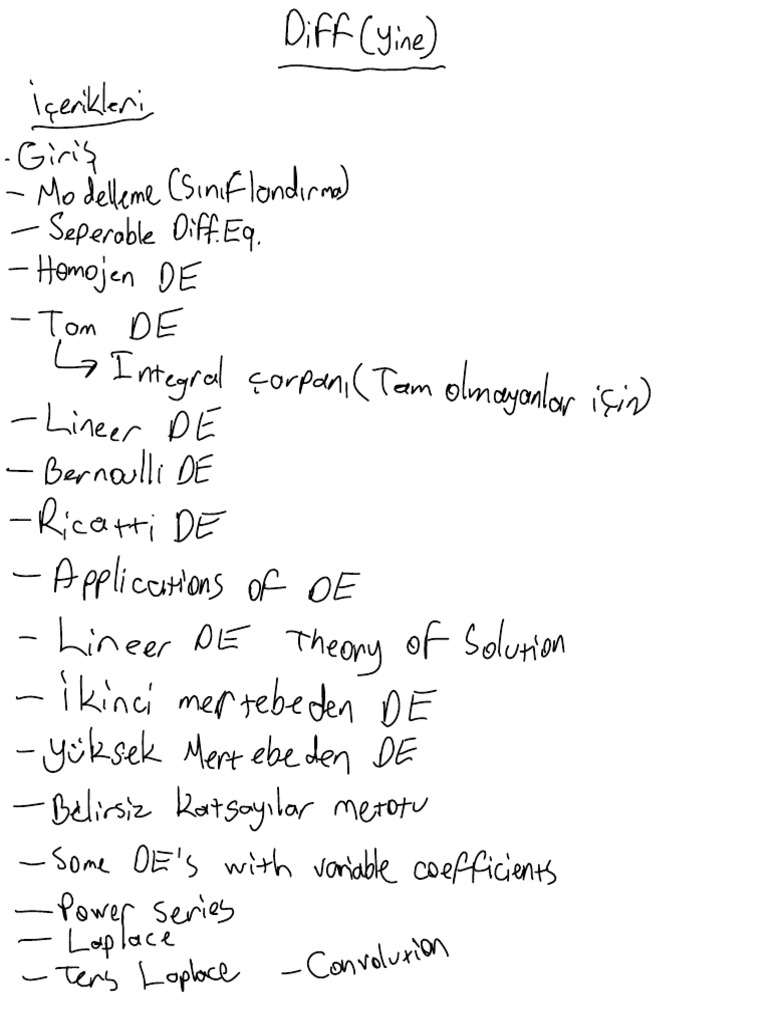 Diff(yine)
İçerikleri
. Giriş
- Modelleme (Sınıflandırma)
- Seperable Diff.Eq.
- Homojen DE
- Tam DE
↳ Integral çarpanı(Tam olmayanlar için)
- Lineer DE
- Bernoulli DE
- Ricatti DE
- Applications of DE
- Lineer DE Theory of Solution
- İkinci mertebeden DE
- Yüksek Mertebeden DE
- Belirsiz katsayılar metotu
- Some DE's with variable coefficients
- Power series
- Laplace
- Ters Laplace - Convolution